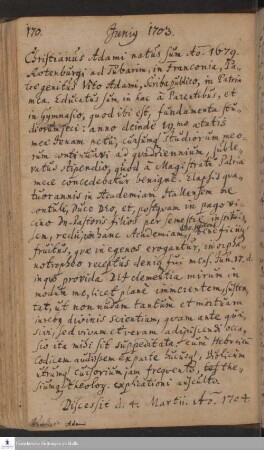 170. Junij 1703.
Christianus Adami natus sum Ao. 1679.
Rotenburgi ad Tubarim, in Franconia, Pa-
tre genitus Vito Adami, Scriba publico, in Patria
mea. Educatus sum in hac à Parentibus, et
in Gymnasio, quod ibi est, fundamenta stu-
diorum jeci: anno deinde 19no ætatis
meæ Jenam petii, cursum studiorum meo-
rum continuavi ad quadriennium, suble-
vatus stipendio, quod a Magistratu Patriæ
meæ concedebatur benigne. Elapsis qua-
tuor annis in Academiam Hallensem me
contuli, Duce Deo, et, postquam in pago vi-
cino Pastoris filios per semestre institui-
sem, redii, in hanc Academiam,
fructus, quæ in egenos erogantur, in orpha-
notropheo receptus denique fui mens. Jun. 
inque provida Dei clementia mirum in
modum me, licet plane immerentem, susten-
tat, ut non nudam tantum et mortuam
rerum divinis scientiam, quam ante quæ-
sivi, sed vivam et veram adipiscendi occa-
sio ita mihi sit suppeditata. cum Hebræum
Codicem audissem ex parte hucusq, 
utrumq cursorium jam frequento, et
theology. explicationi ausculto.
Discessit d. 4. Martii. Ao. 1704
Christian Adami